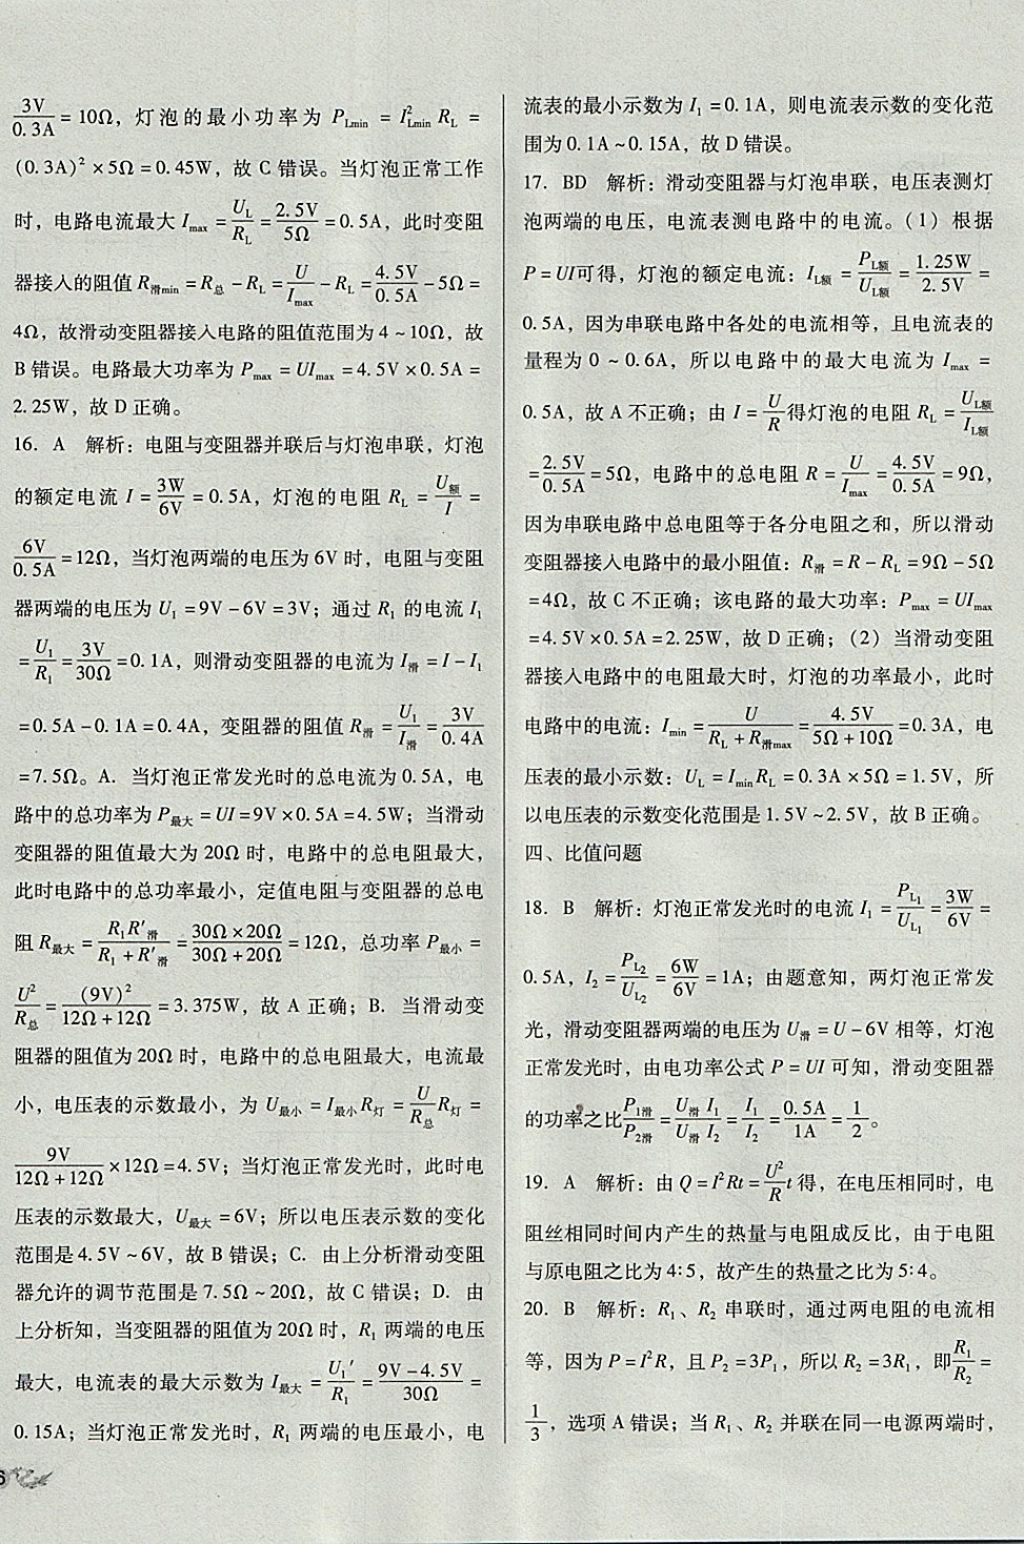 3V/0.3A=10Ω，灯泡的最小功率为 P_Lmin = I²_Lmin R_L =
(0.3A)²×5Ω=0.45W，故 C 错误。当灯泡正常工作
时，电路电流最大 I_max = U_L/R_L = 2.5V/5Ω = 0.5A，此时变阻
器接入的阻值 R_滑min = R_总 − R_L = U/I_max − R_L = 4.5V/0.5A − 5Ω =
4Ω，故滑动变阻器接入电路的阻值范围为 4~10Ω，故
B 错误。电路最大功率为 P_max = UI_max = 4.5V×0.5A =
2.25W，故 D 正确。
16. A 解析：电阻与变阻器并联后与灯泡串联，灯泡
的额定电流 I = 3W/6V = 0.5A，灯泡的电阻 R_L = U_额/I =
6V/0.5A = 12Ω，当灯泡两端的电压为 6V 时，电阻与变阻
器两端的电压为 U₁ = 9V − 6V = 3V；通过 R₁ 的电流 I₁
= U₁/R₁ = 3V/30Ω = 0.1A，则滑动变阻器的电流为 I_滑 = I − I₁
= 0.5A − 0.1A = 0.4A，变阻器的阻值 R_滑 = U₁/I_滑 = 3V/0.4A
= 7.5Ω。A. 当灯泡正常发光时的总电流为 0.5A，电
路中的总功率为 P_最大 = UI = 9V×0.5A = 4.5W；当滑动
变阻器的阻值最大为 20Ω 时，电路中的总电阻最大，
此时电路中的总功率最小，定值电阻与变阻器的总电
阻 R_最大 = R₁R′_滑/(R₁+R′_滑) = 30Ω×20Ω/(30Ω+20Ω) = 12Ω，总功率 P_最小 =
U²/R_总 = (9V)²/(12Ω+12Ω) = 3.375W，故 A 正确；B. 当滑动变
阻器的阻值为 20Ω 时，电路中的总电阻最大，电流最
小，电压表的示数最小，为 U_最小 = I_最小 R_灯 = U/R_总 R_灯 =
9V/(12Ω+12Ω)×12Ω = 4.5V；当灯泡正常发光时，此时电
压表的示数最大，U_最大 = 6V；所以电压表示数的变化
范围是 4.5V~6V，故 B 错误；C. 由上分析滑动变阻
器允许的调节范围是 7.5Ω~20Ω，故 C 错误；D. 由
上分析知，当变阻器的阻值为 20Ω 时，R₁ 两端的电压
最大，电流表的最大示数为 I_最大 = U₁′/R₁ = (9V−4.5V)/30Ω =
0.15A；当灯泡正常发光时，R₁ 两端的电压最小，电
6
流表的最小示数为 I₁ = 0.1A，则电流表示数的变化范
围为 0.1A~0.15A，故 D 错误。
17. BD 解析：滑动变阻器与灯泡串联，电压表测灯
泡两端的电压，电流表测电路中的电流。（1）根据
P = UI可得，灯泡的额定电流：I_L额 = P_L额/U_L额 = 1.25W/2.5V =
0.5A，因为串联电路中各处的电流相等，且电流表的
量程为 0~0.6A，所以电路中的最大电流为 I_max =
0.5A，故 A 不正确；由 I = U/R 得灯泡的电阻 R_L = U_L额/I_L额
= 2.5V/0.5A = 5Ω，电路中的总电阻 R = U/I_max = 4.5V/0.5A = 9Ω，
因为串联电路中总电阻等于各分电阻之和，所以滑动
变阻器接入电路中的最小阻值：R_滑 = R − R_L = 9Ω − 5Ω
= 4Ω，故 C 不正确；该电路的最大功率：P_max = UI_max
= 4.5V×0.5A = 2.25W，故 D 正确；（2）当滑动变阻
器接入电路中的电阻最大时，灯泡的功率最小，此时
电路中的电流：I_min = U/(R_L+R_滑max) = 4.5V/(5Ω+10Ω) = 0.3A，电
压表的最小示数：U_L = I_min R_L = 0.3A×5Ω = 1.5V，所
以电压表的示数变化范围是 1.5V~2.5V，故 B 正确。
四、比值问题
18. B 解析：灯泡正常发光时的电流 I₁ = P_L₁/U_L₁ = 3W/6V =
0.5A，I₂ = P_L₂/U_L₂ = 6W/6V = 1A；由题意知，两灯泡正常发
光，滑动变阻器两端的电压为 U_滑 = U − 6V 相等，灯泡
正常发光时，由电功率公式 P = UI 可知，滑动变阻器
的功率之比 P_1滑/P_2滑 = U_滑 I₁/U_滑 I₂ = I₁/I₂ = 0.5A/1A = 1/2。
19. A 解析：由 Q = I²Rt = U²/R t 得，在电压相同时，电
阻丝相同时间内产生的热量与电阻成反比，由于电阻
与原电阻之比为 4∶5，故产生的热量之比为 5∶4。
20. B 解析：R₁、R₂ 串联时，通过两电阻的电流相
等，因为 P = I²R，且 P₂ = 3P₁，所以 R₂ = 3R₁，即 R₁/R₂ =
1/3，选项 A 错误；当 R₁、R₂ 并联在同一电源两端时，